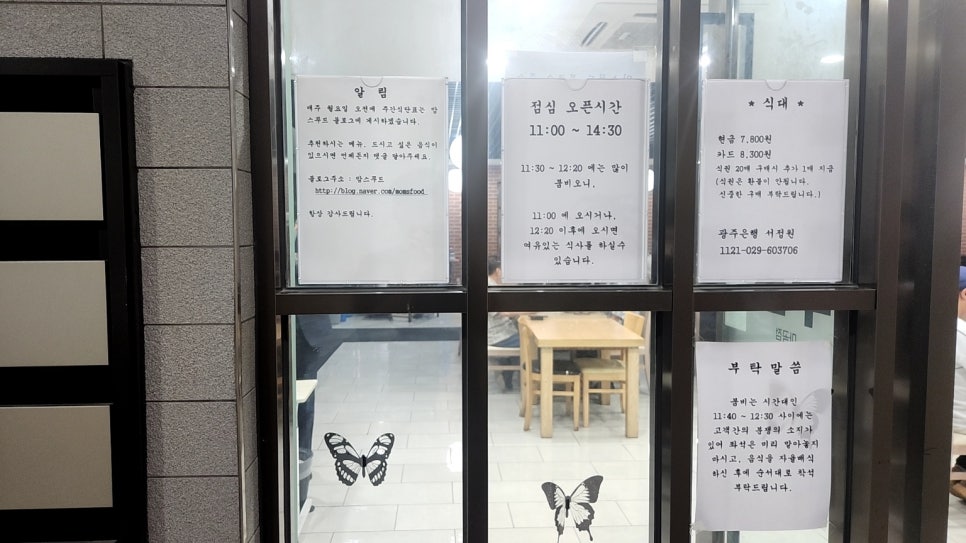 알 림
매주 월요일 오전에 주간식단표는 맘
스푸드 블로그에 게시하겠습니다.
추천하시는 메뉴, 드시고 싶은 음식이
있으시면 언제든지 댓글 달아주세요.
블로그주소 : 맘스푸드
http://blog.naver.com/momsfood
항상 감사드립니다.
점심 오픈시간
11:00 ~ 14:30
11:30 ~ 12:20 에는 많이
붐비오니,
11:00 에 오시거나,
12:20 이후에 오시면
여유있는 식사를 하실수
있습니다.
* 식대 *
현금 7,800원
카드 8,300원
식권 20매 구매시 추가 1매 지급
(식권은 환불이 안됩니다.
신중한 구매 부탁드립니다.)
광주은행 서정원
1121-029-603706
부 탁 말 씀
붐비는 시간대인
11:40 ~ 12:30 사이에는
고객간의 분쟁의 소지가
있어 좌석은 미리 맡아놓지
마시고, 음식을 자율배식
하신 후에 순서대로 착석
부탁드립니다.